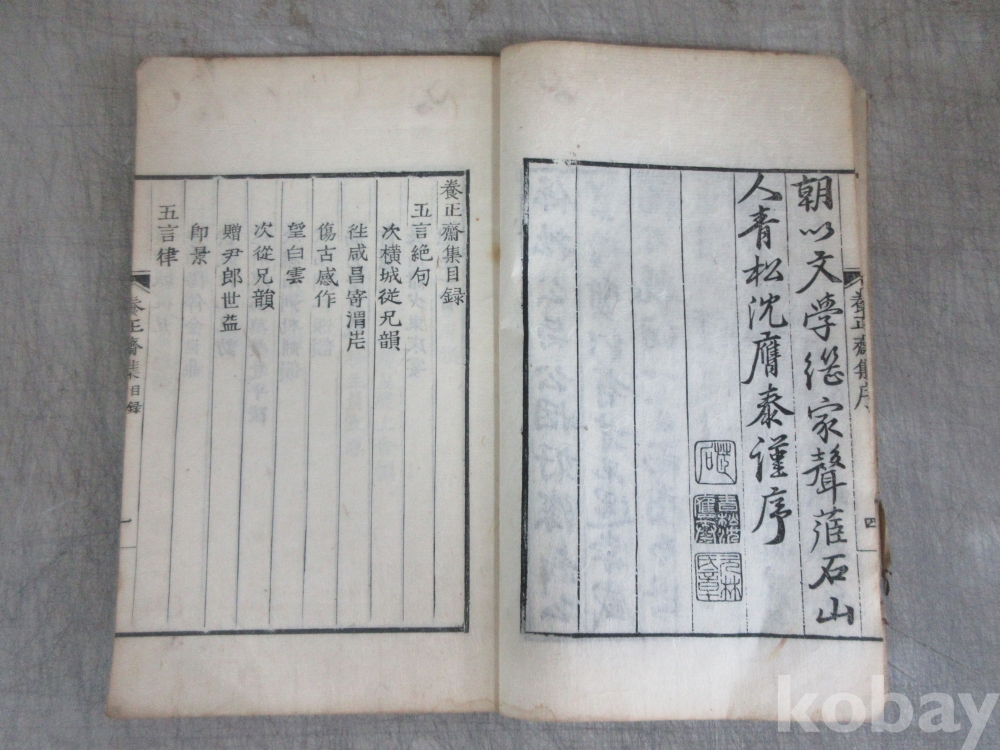 朝以文學繼家聲萑石山
人青松沈膺泰謹序
養正齋集序
四
養正齋集目録
五言絶句
次橫城從兄韻
徃咸昌寄渭厓
傷古感作
望白雲
次從兄韻
贈尹郎世益
卽景
五言律
養正齋集 目録
一
kobay